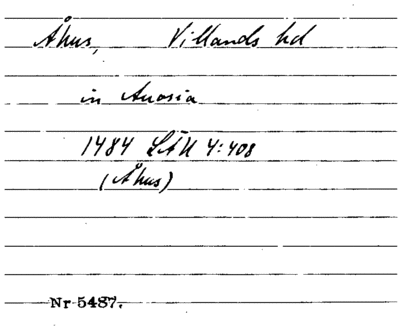 Åhus, Villands hd
in Auosia
1484 LÄU 4:408
(Åhus)
Nr 5487.